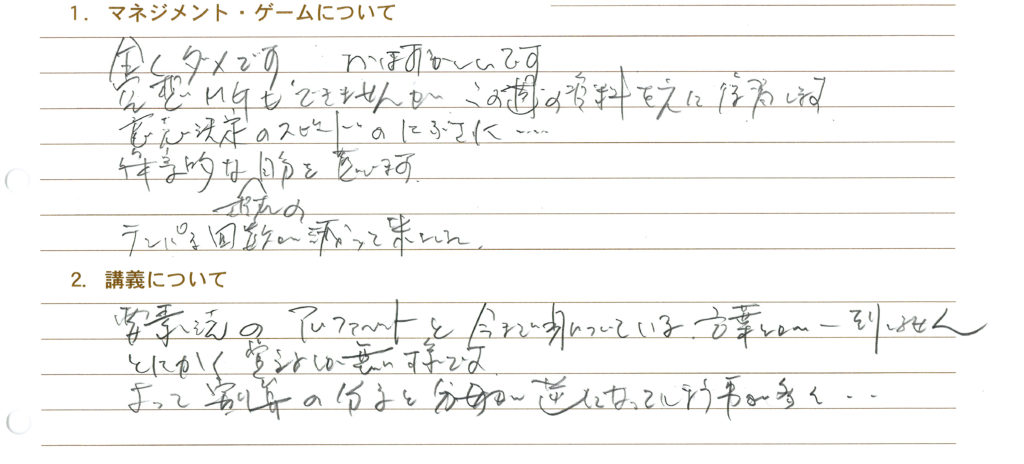 1. マネジメント・ゲームについて
全くダメです はずかしいです
宿題 MGもできませんが この週の資料を元に復習します
意思決定のスピードのにぶさに‥‥
学的な自分を思います。
テンパる回数が減って来ました。
2. 講義について
要素法のアルファベットと今まで身についている言葉とが一致しません
とにかく覚えるしか無い様です。
よって割算の分子と分母が逆になってしまう事が多く‥